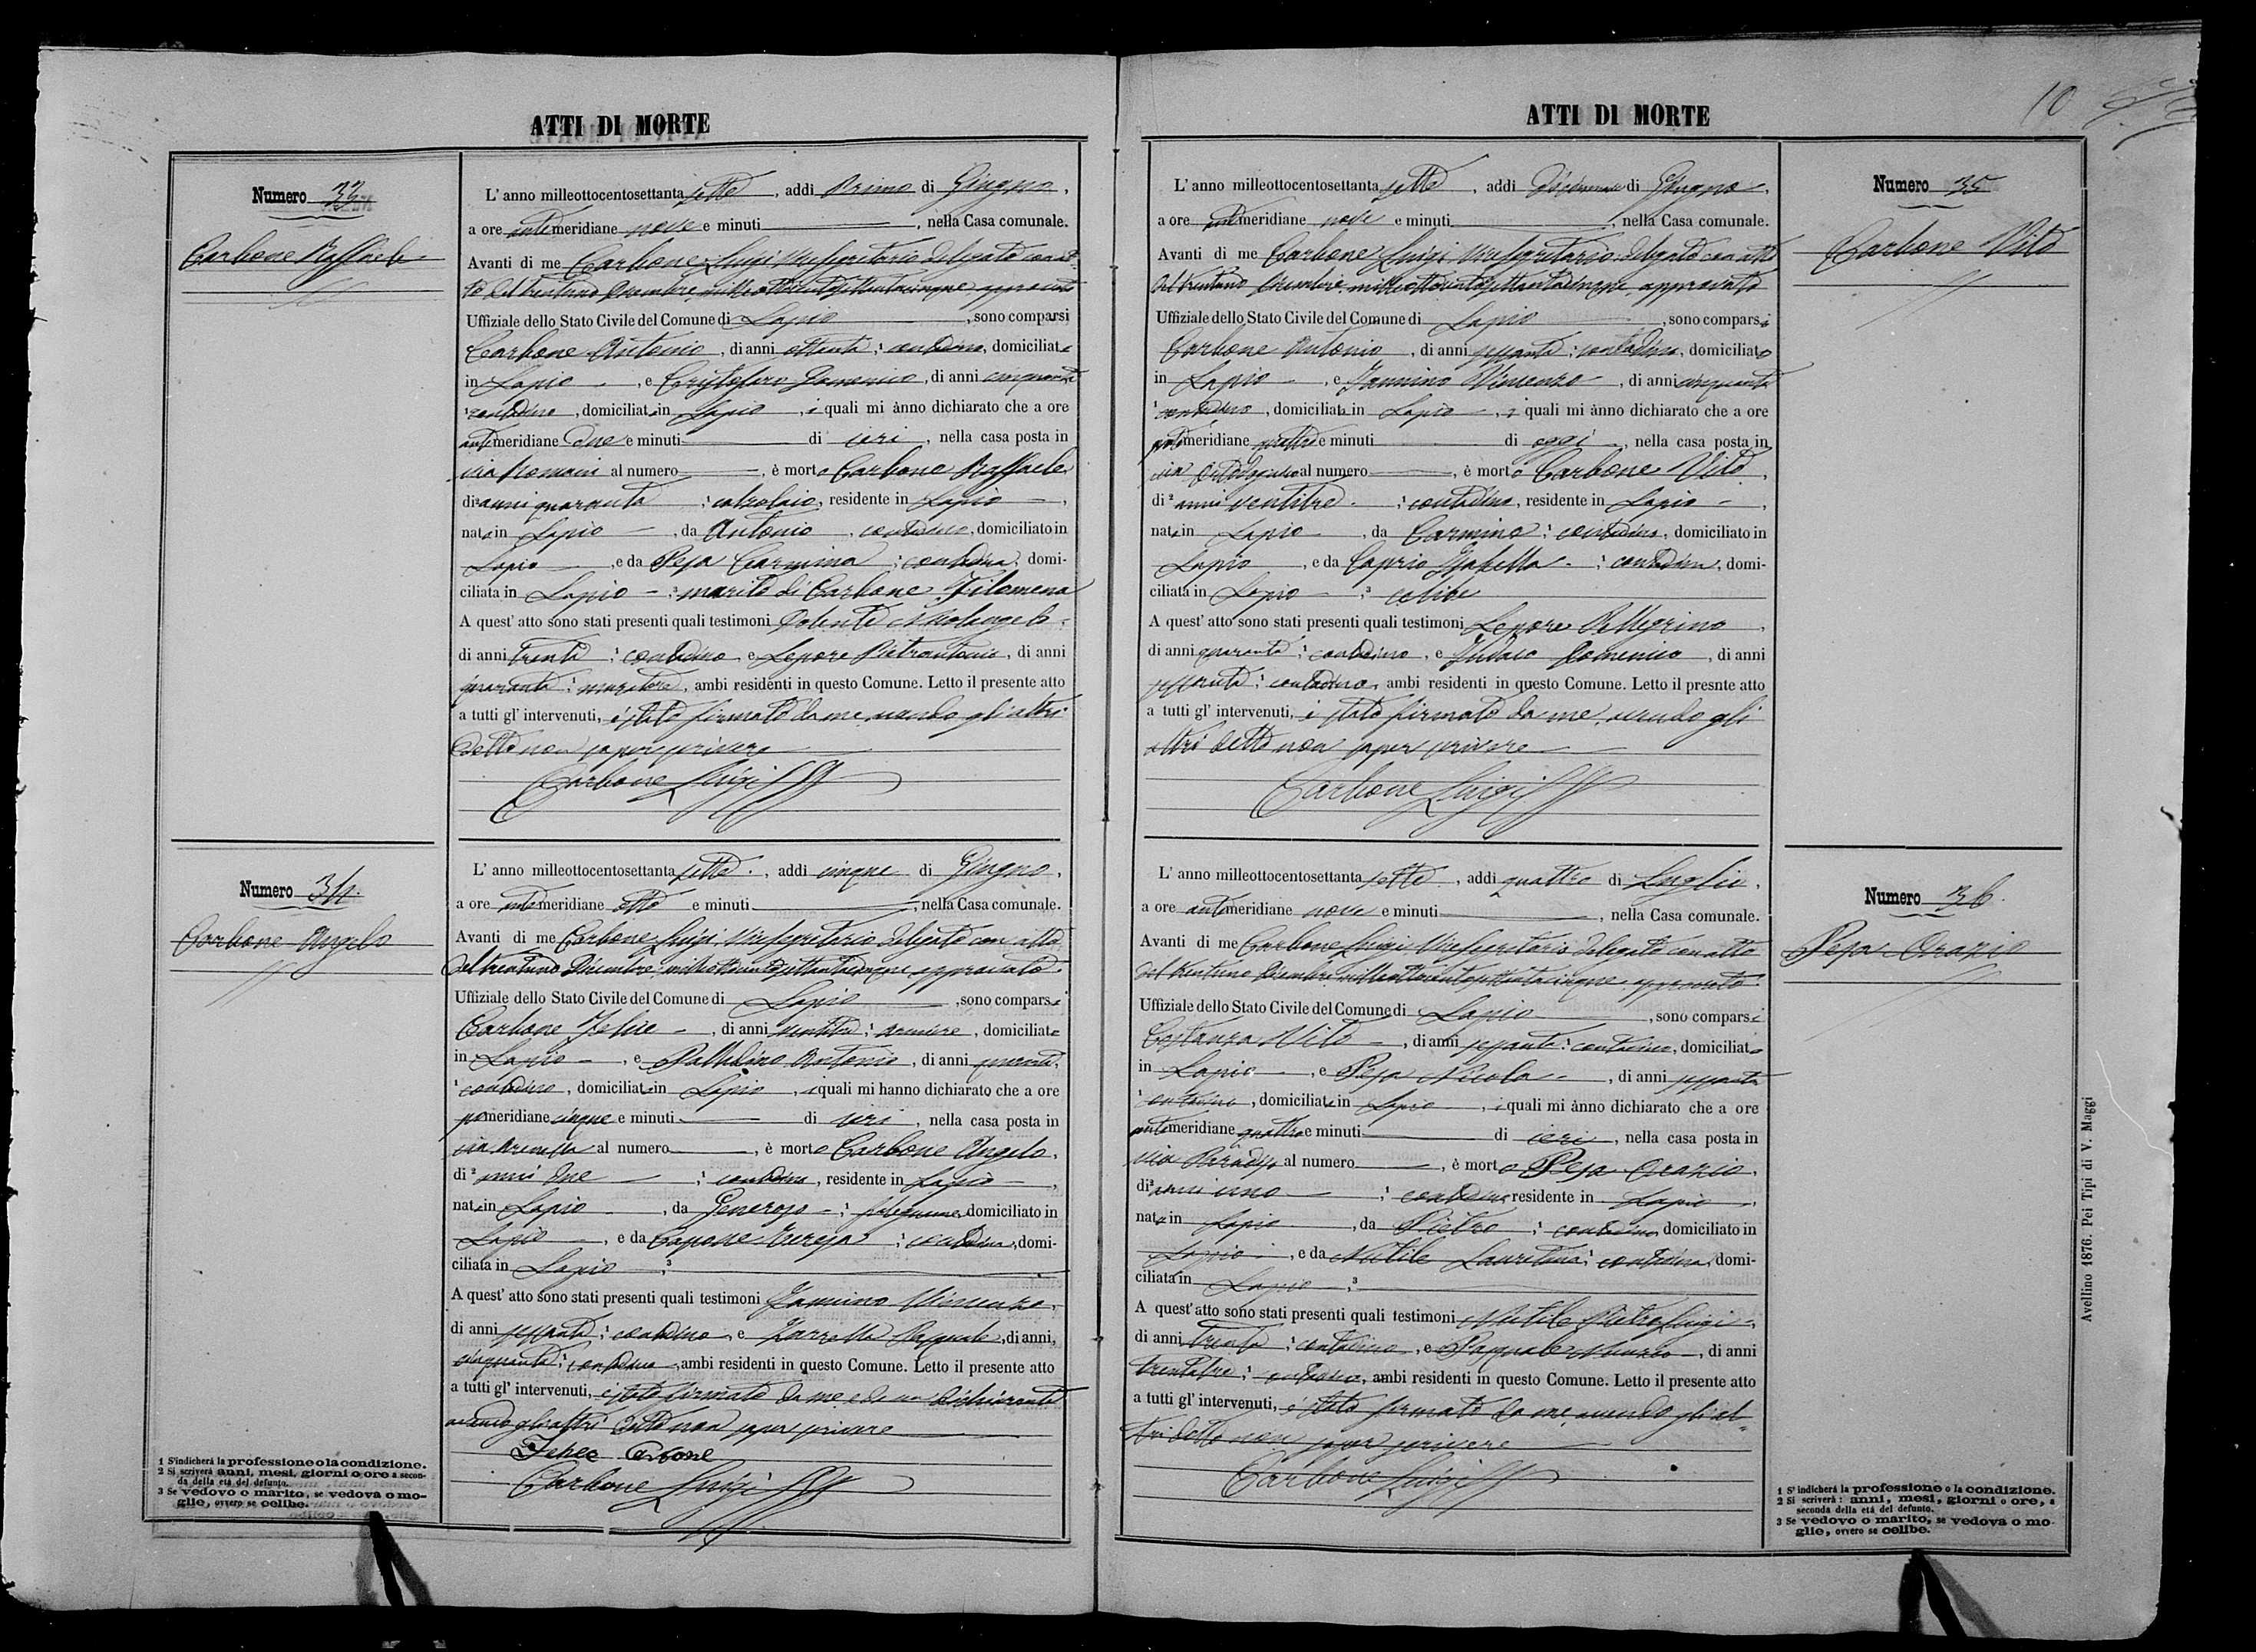 ATTI DI MORTE
Numero 33
Carbone Raffaele
L' anno milleottocentosettanta sette, addi Primo di Giugno,
a ore antimeridiane nove e minuti, nella Casa comunale.
Avanti di me Carbone Luigi Vicesegretario delegato con at-
to del trentuno Decembre milleottocentosettantacinque approvato
Uffiziale dello Stato Civile del Comune di Lapio, sono comparsi
Carbone Antonio, di anni ottanta; 1 contadino, domiciliato
in Lapio, e Cristofaro Domenico, di anni cinquanta
1 contadino, domiciliato in Lapio, i quali mi ànno dichiarato che a ore
antimeridiane due e minuti di ieri, nella casa posta in
via Romani al numero, è morto Carbone Raffaele
di 2 anni quaranta; 1 calzolaio, residente in Lapio,
nato in Lapio, da Antonio, contadino, domiciliato in
Lapio, e da Pesa Carmina; contadina, domi-
ciliata in Lapio; 3 marito di Carbone Filomena
A quest' atto sono stati presenti quali testimoni Dolente Michelangelo,
di anni trenta; 1 contadino e Lepore Pietrantonio, di anni
quaranta; 1 muratore, ambi residenti in questo Comune. Letto il presente atto
a tutti gl' intervenuti, è stato firmato da me, avendo gli altri
detto non saper scrivere
Carbone Luigi
Numero 34.
Carbone Angelo
L' anno milleottocentosettanta sette, addi cinque di Giugno,
a ore antimeridiane otto e minuti, nella Casa comunale.
Avanti di me Carbone Luigi, Vicesegretario delegato con atto
del trentuno Dicembre milleottocentosettantacinque approvato
Uffiziale dello Stato Civile del Comune di Lapio, sono comparsi
Carbone Felice, di anni ventitre; 1, domiciliato
in Lapio, e Palladino Antonio, di anni quaranta,
1 contadino, domiciliato in Lapio, i quali mi hanno dichiarato che a ore
pomeridiane cinque e minuti di ieri, nella casa posta in
via al numero, è morto Carbone Angelo,
di 2 anni due; 1 contadino, residente in Lapio,
nato in Lapio, da Generoso; 1 falegname domiciliato in
Lapio, e da Capone Teresa; 1 contadina, domi-
ciliata in Lapio; 3
A quest' atto sono stati presenti quali testimoni Iannino Vincenzo,
di anni sessanta; 1 contadino, e Zarrella Pasquale, di anni,
cinquanta; 1 contadino, ambi residenti in questo Comune. Letto il presente atto
a tutti gl' intervenuti, è stato firmato da me e da un dichiarante
avendo gli altri detto non saper scrivere
Felice Carbone
Carbone Luigi
1 S'indicherà la professione o la condizione.
2 Si scriverà anni, mesi, giorni o ore a secon-
da della età del defunto.
3 Se vedovo o marito, se vedova o mo-
glie, ovvero se celibe.
ATTI DI MORTE
10
Numero 35
Carbone Vito
L' anno milleottocentosettanta sette, addi di Giugno,
a ore antimeridiane nove e minuti, nella Casa comunale.
Avanti di me Carbone Luigi, Vicesegretario delegato con atto
del trentuno Decembre milleottocentosettantacinque approvato
Uffiziale dello Stato Civile del Comune di Lapio, sono comparsi
Carbone Antonio, di anni sessanta; 1 contadino, domiciliato
in Lapio, e Iannino Vincenzo, di anni cinquanta
1 contadino, domiciliato in Lapio, i quali mi ànno dichiarato che a ore
antimeridiane quattro e minuti di oggi, nella casa posta in
via al numero, è morto Carbone Vito,
di 2 anni ventitre; 1 contadino, residente in Lapio,
nato in Lapio, da Carmine; 1 contadino, domiciliato in
Lapio, e da Caprio Isabella; 1 contadina, domi-
ciliata in Lapio; 3 celibe
A quest' atto sono stati presenti quali testimoni Lepore Pellegrino,
di anni quaranta; 1 contadino, e Domenico, di anni
sessanta; 1 contadino, ambi residenti in questo Comune. Letto il presnte atto
a tutti gl' intervenuti, è stato firmato da me, avendo gli
altri detto non saper scrivere
Carbone Luigi
Numero 36.
Pesa Orazio
L' anno milleottocentosettanta sette, addi quattro di Luglio,
a ore antimeridiane nove e minuti, nella Casa comunale.
Avanti di me Carbone Luigi Vicesegretario delegato con atto
del trentuno Decembre milleottocentosettantacinque approvato
Uffiziale dello Stato Civile del Comune di Lapio, sono comparsi
Costanza Vito, di anni sessanta; 1 contadino, domiciliato
in Lapio, e Pesa Nicola, di anni sessanta
1 contadino, domiciliato in Lapio, i quali mi ànno dichiarato che a ore
antimeridiane quattro e minuti di ieri, nella casa posta in
via Paradiso al numero, è morto Pesa Orazio,
di 2 anni uno; 1 contadino residente in Lapio,
nato in Lapio, da Pietro; 1 contadino domiciliato in
Lapio, e da Nutile Lauretana; 1 contadina, domi-
ciliata in Lapio; 3
A quest' atto sono stati presenti quali testimoni Nutile Pietro Luigi,
di anni trenta; 1 contadino, e Pasquale Nunzio, di anni
trentatre; 1 contadino, ambi residenti in questo Comune. Letto il presente atto
a tutti gl' intervenuti, è stato firmato da me avendo gli al-
tri detto non saper scrivere
Carbone Luigi
1 S'indicherà la professione o la condizione.
2 Si scriverà: anni, mesi, giorni o ore, a
seconda della età del defunto.
3 Se vedovo o marito, se vedova o mo-
glie, ovvero se celibe.
Avellino 1876. Pei Tipi di V. Maggi